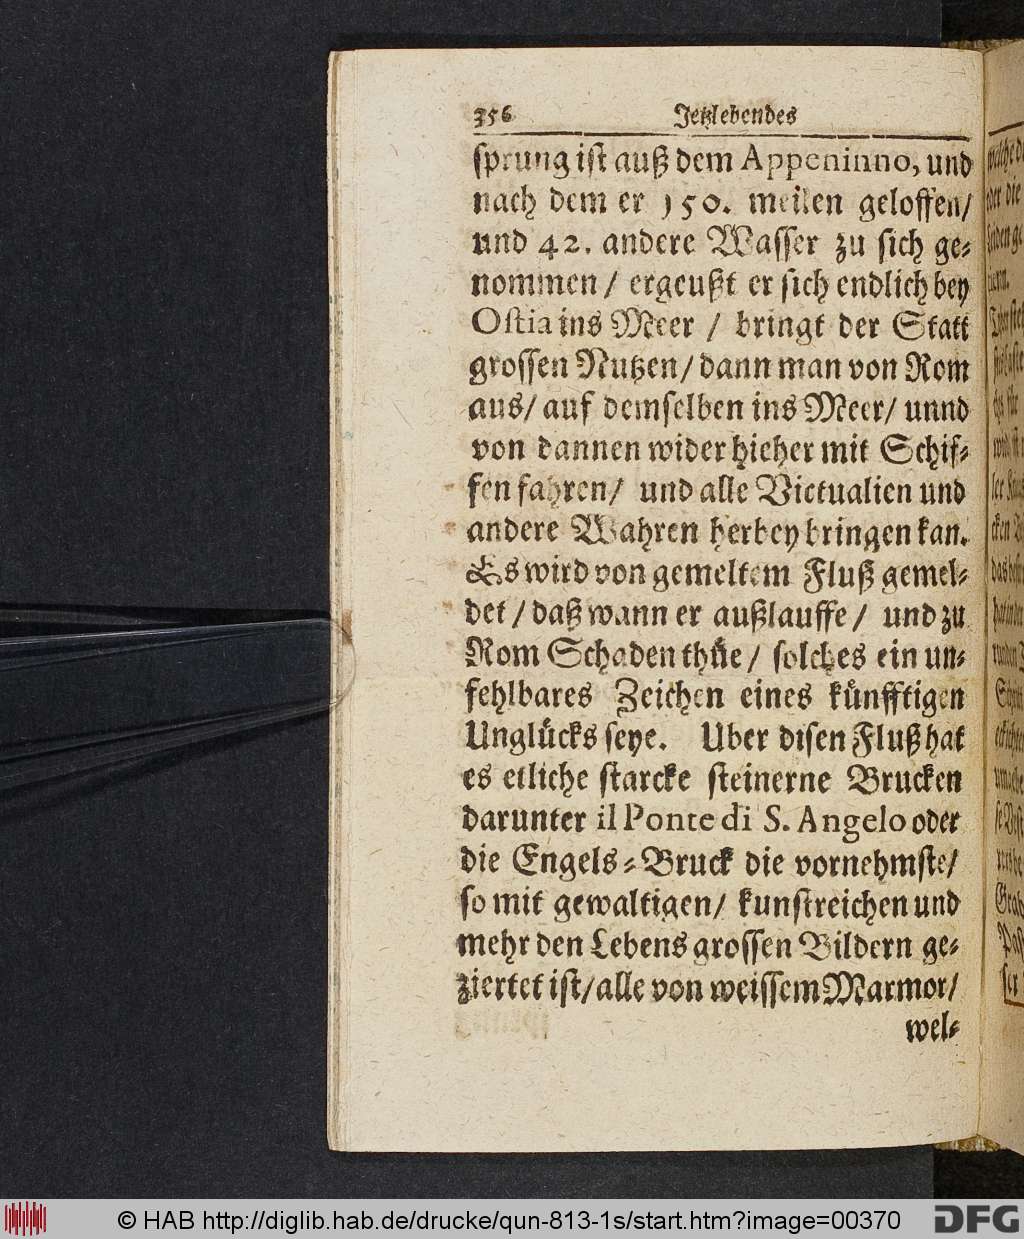 356 Jetzlebendes
sprung ist auß dem Appeninno, und
nach dem er 150. meilen geloffen/
und 42. andere Wasser zu sich ge-
nommen / ergeußt er sich endlich bey
Ostia ins Meer / bringt der Statt
grossen Nutzen/ dann man von Rom
aus/ auf demselben ins Meer/ unnd
von dannen wider hieher mit Schif-
fen fahren/ und alle Victualien und
andere Wahren herbey bringen kan.
Es wird von gemeltem Fluß gemel-
det / daß wann er außlauffe / und zu
Rom Schaden thüe / solches ein un-
fehlbares Zeichen eines künfftigen
Unglücks seye. Uber disen Fluß hat
es etliche starcke steinerne Brucken
darunter il Ponte di S. Angelo oder
die Engels-Bruck die vornehmste/
so mit gewaltigen/ kunstreichen und
mehr den Lebens grossen Bildern ge-
ziertet ist/ alle von weissem Marmor/
wel-
© HAB http://diglib.hab.de/drucke/qun-813-1s/start.htm?image=00370
DFG